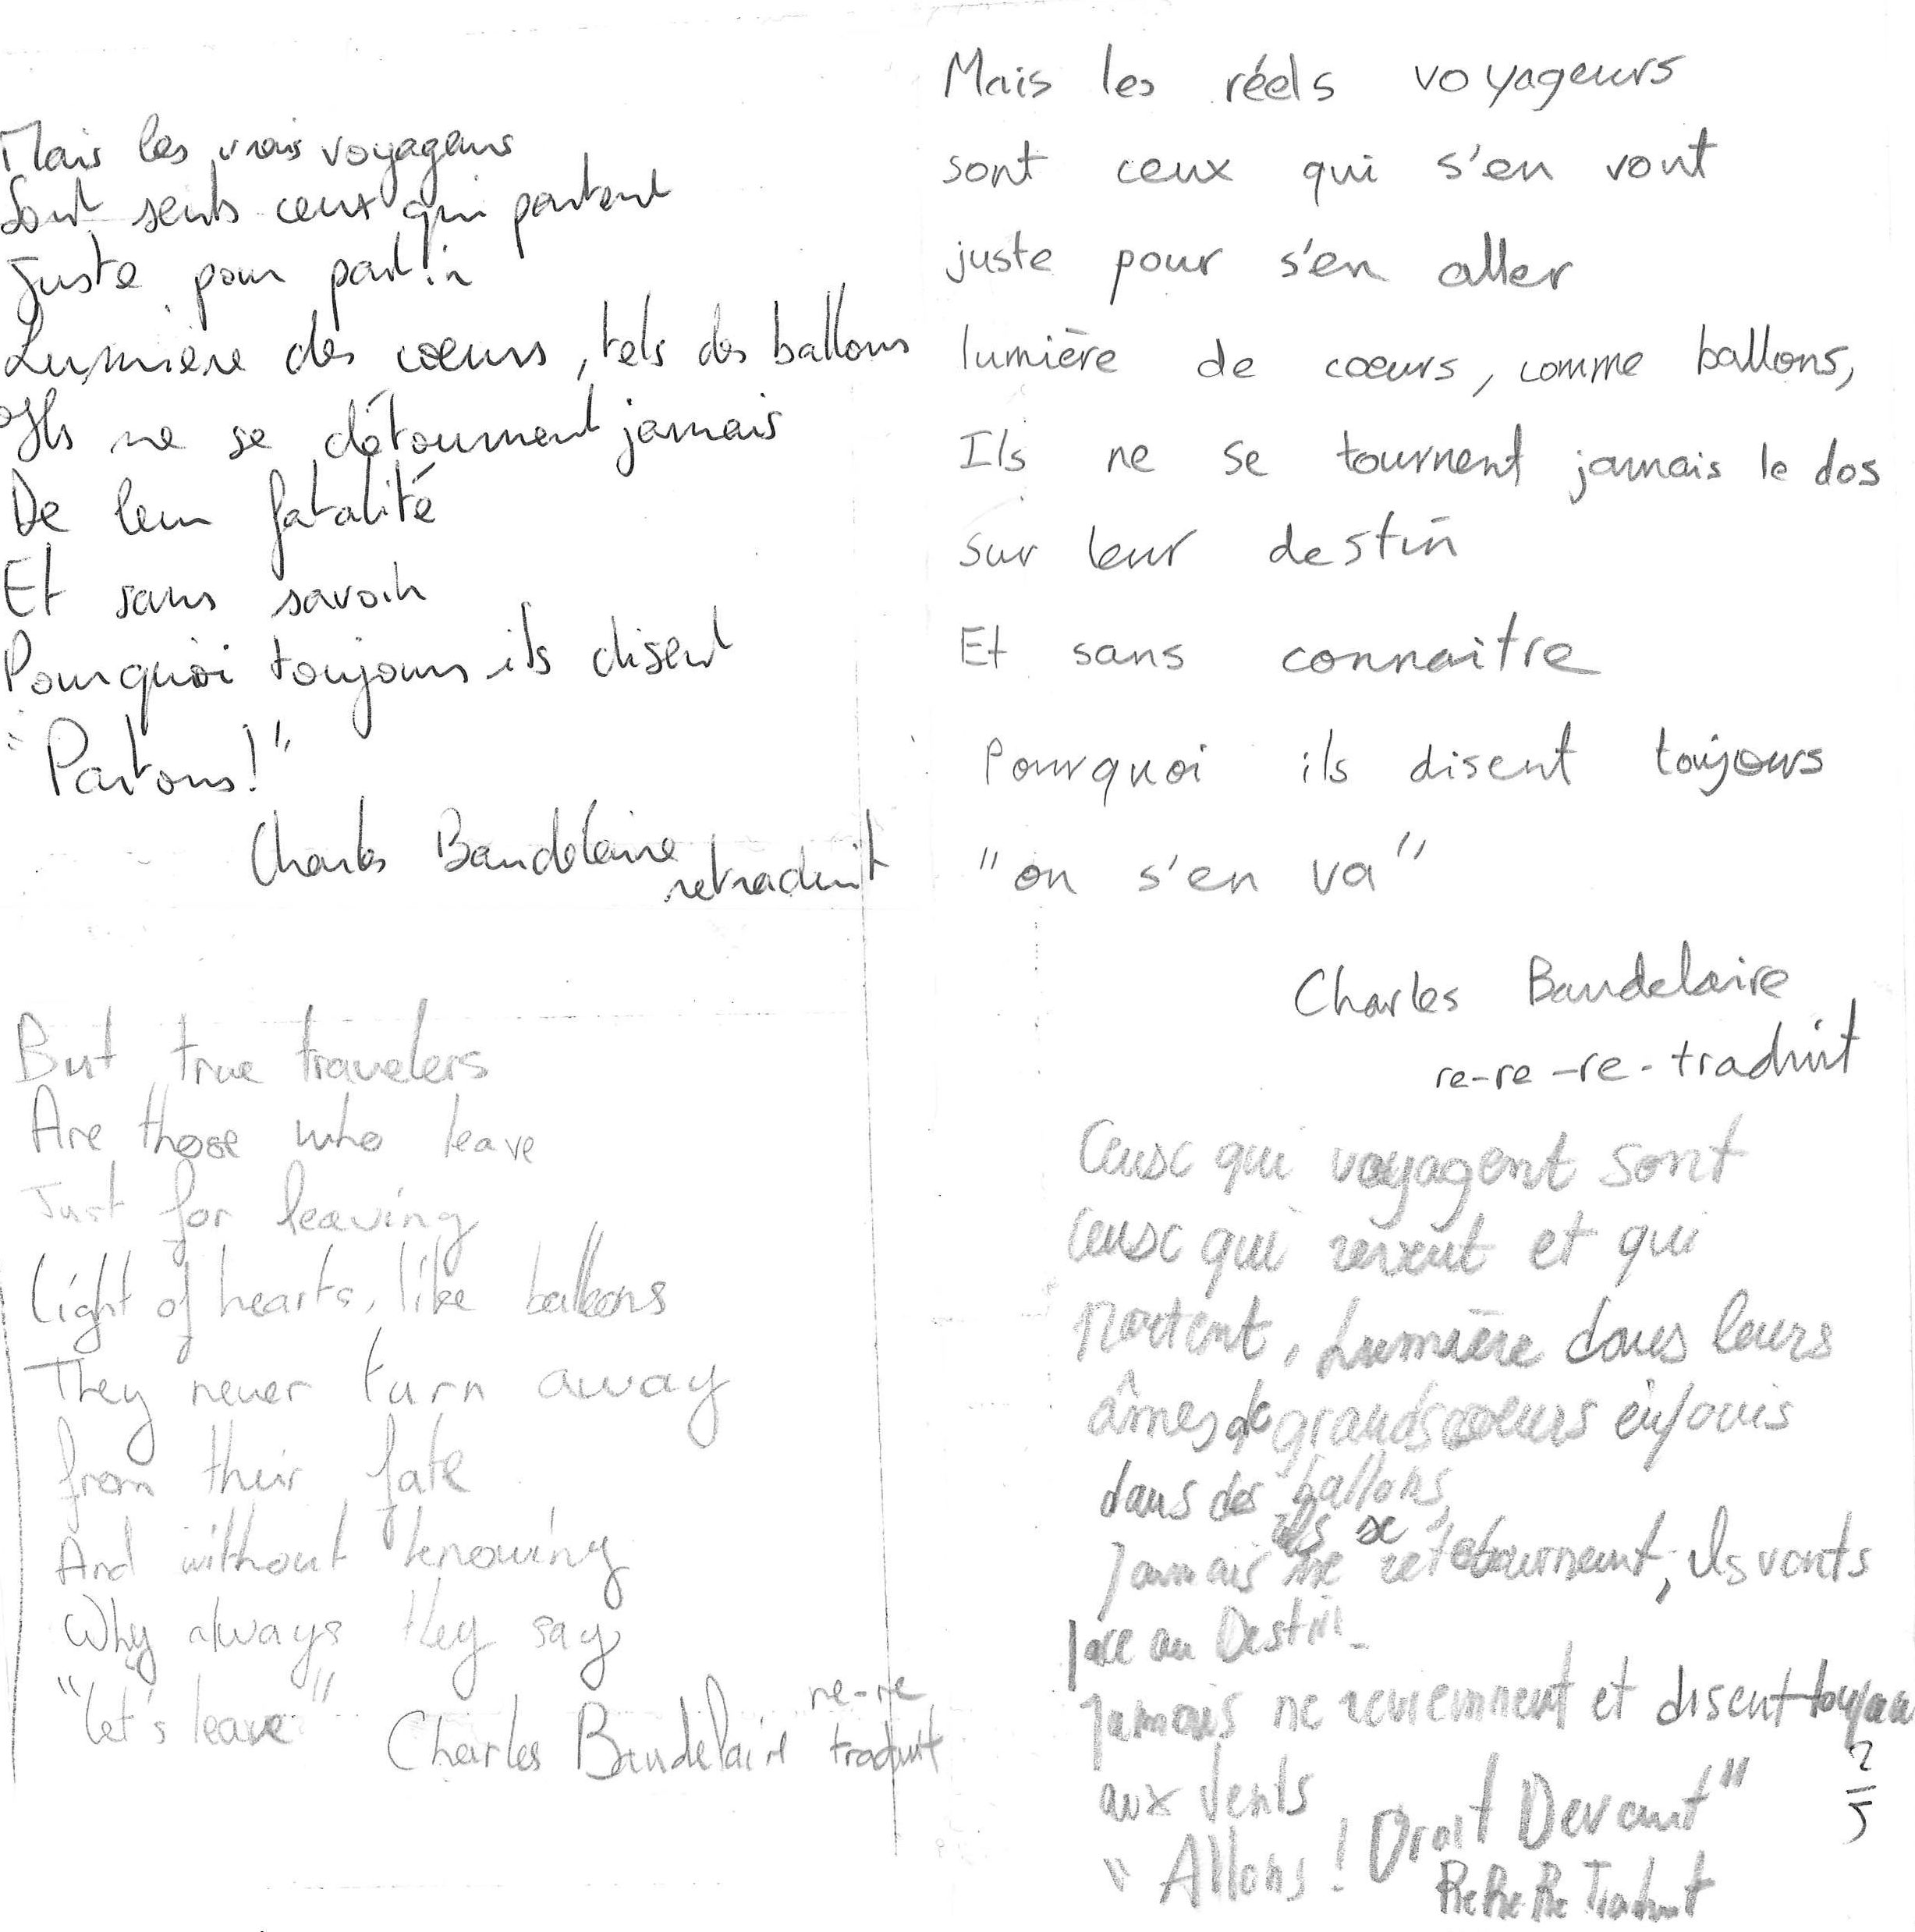 Mais les vrais voyageurs
Sont seuls ceux qui partent
Juste pour partir
Lumière des coeurs, tels des ballons
Ils ne se détournent jamais
De leur fatalité
Et sans savoir
Pourquoi toujours ils disent
"Partons!"
Charles Baudelaire
retraduit
But true travelers
Are those who leave
Just for leaving
light of hearts, like balloons
They never turn away
from their fate
And without knowing
Why always they say
"let's leave"
Charles Baudelaire re-re
traduit
Mais les réels voyageurs
sont ceux qui s'en vont
juste pour s'en aller
lumière de coeurs, comme ballons,
Ils ne se tournent jamais le dos
sur leur destin
Et sans connaitre
Pourquoi ils disent toujours
"on s'en va"
Charles Baudelaire
re-re-re-traduit
Ceux qui voyagent sont
ceux qui rêvent et qui
partent, Lumière dans leurs
âmes de grands coeurs enfouis
dans des ballons,
Jamais ils ne se retournent, ils vonts
face au Destin.
Jamais ne reviennent et disent toujou
aux Vents
"Allons! Droit Devant"
ReReRe Traduit
2
5